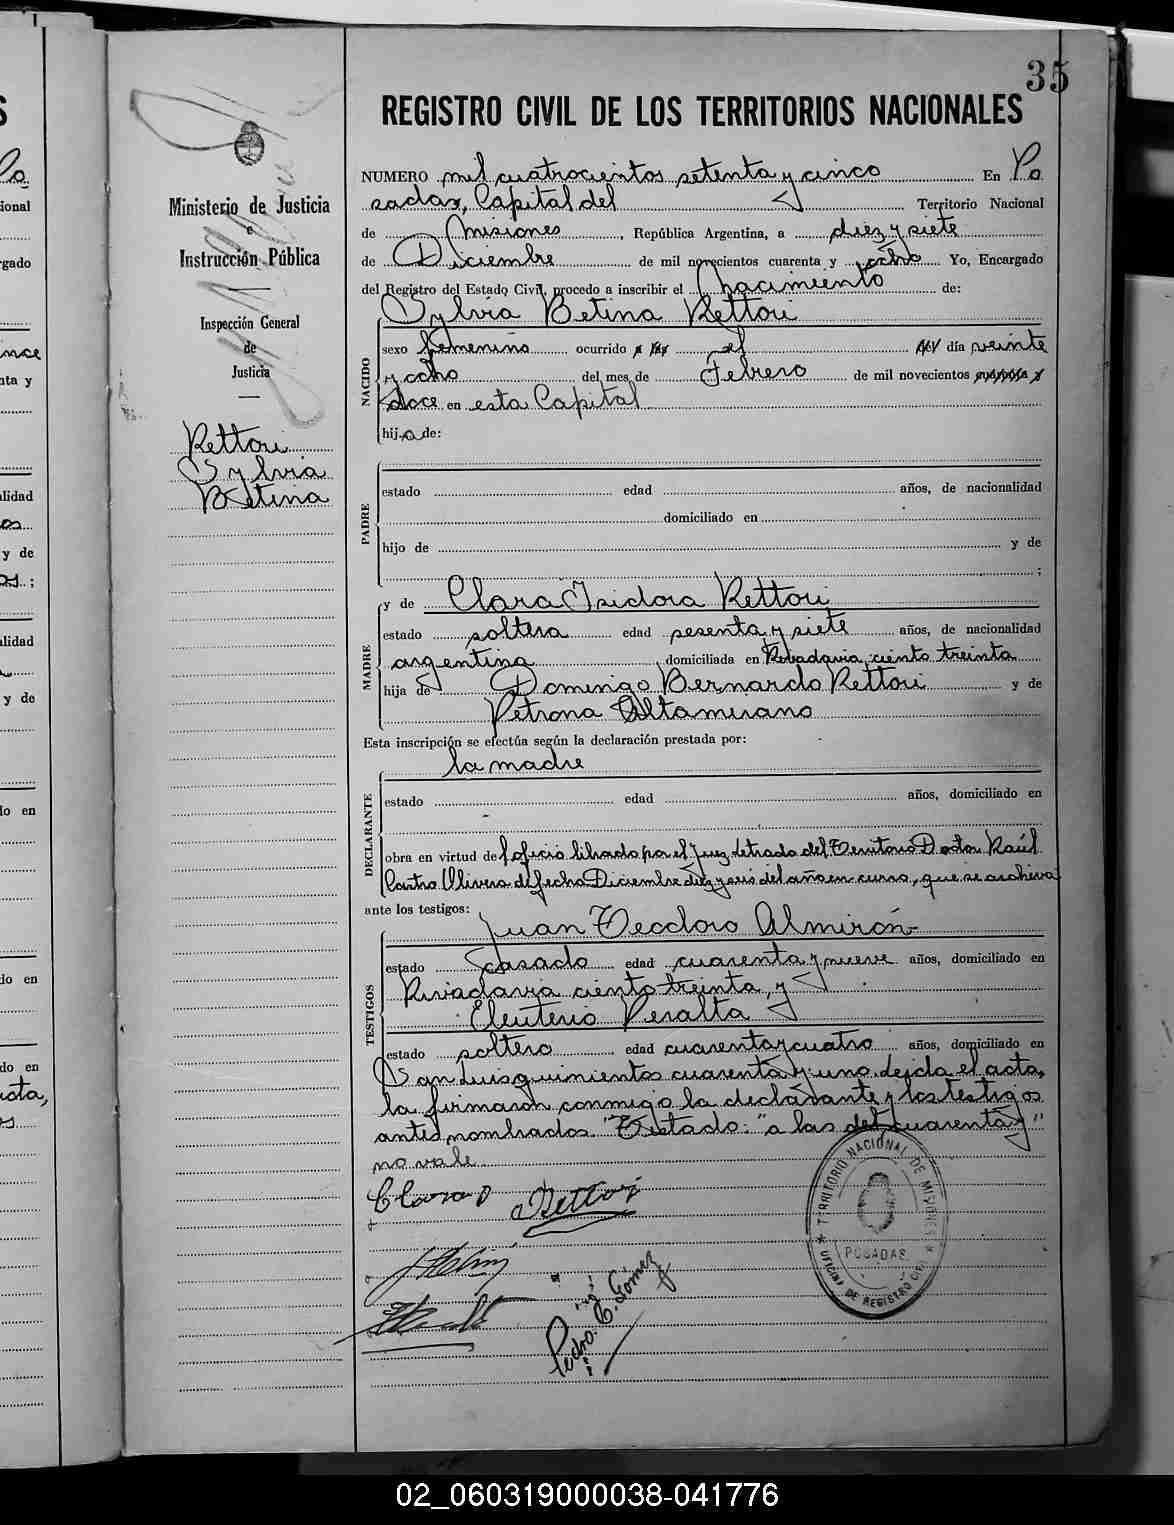 35
REGISTRO CIVIL DE LOS TERRITORIOS NACIONALES
Ministerio de Justicia
e
Instrucción Pública
Inspección General
de
Justicia
Rettori
Sylvia
Betina
NUMERO mil cuatrocientos setenta y cinco En Po
sadas, Capital del Territorio Nacional
de Misiones, República Argentina, a diez y siete
de Diciembre de mil novecientos cuarenta y ocho Yo, Encargado
del Registro del Estado Civil, procedo a inscribir el nacimiento de:
Sylvia Betina Rettori
NACIDO
sexo femenino ocurrido a las el del día veinte
y ocho del mes de Febrero de mil novecientos cuarenta y
doce en esta Capital
hija de:
PADRE
estado edad años, de nacionalidad
domiciliado en
hijo de y de
;
MADRE
y de Clara Isidora Rettori
estado soltera edad sesenta y siete años, de nacionalidad
argentina domiciliada en Rivadavia ciento treinta
hija de Domingo Bernardo Rettori y de
Petrona Altamirano
Esta inscripción se efectúa según la declaración prestada por:
la madre
DECLARANTE
estado edad años, domiciliado en
obra en virtud de oficio librado por el Juez Letrado del Territorio Doctor Raúl
Castro Olivera de fecha Diciembre diez y seis del año en curso, que se archiva
ante los testigos:
Juan Teodoro Almirón
TESTIGOS
estado casado edad cuarenta y nueve años, domiciliado en
Rivadavia ciento treinta y
Eleuterio Peralta
estado soltero edad cuarenta y cuatro años, domiciliado en
San Luis quinientos cuarenta y uno. Leida el acta,
la firmaron conmigo la declarante y los testigos
antes nombrados. "Testado: "a las del cuarenta y"
no vale
Clara Rettori
Pedro C. Gómez
TERRITORIO NACIONAL DE MISIONES
POSADAS
OFICINA DE REGISTRO CIVIL
02_060319000038-041776